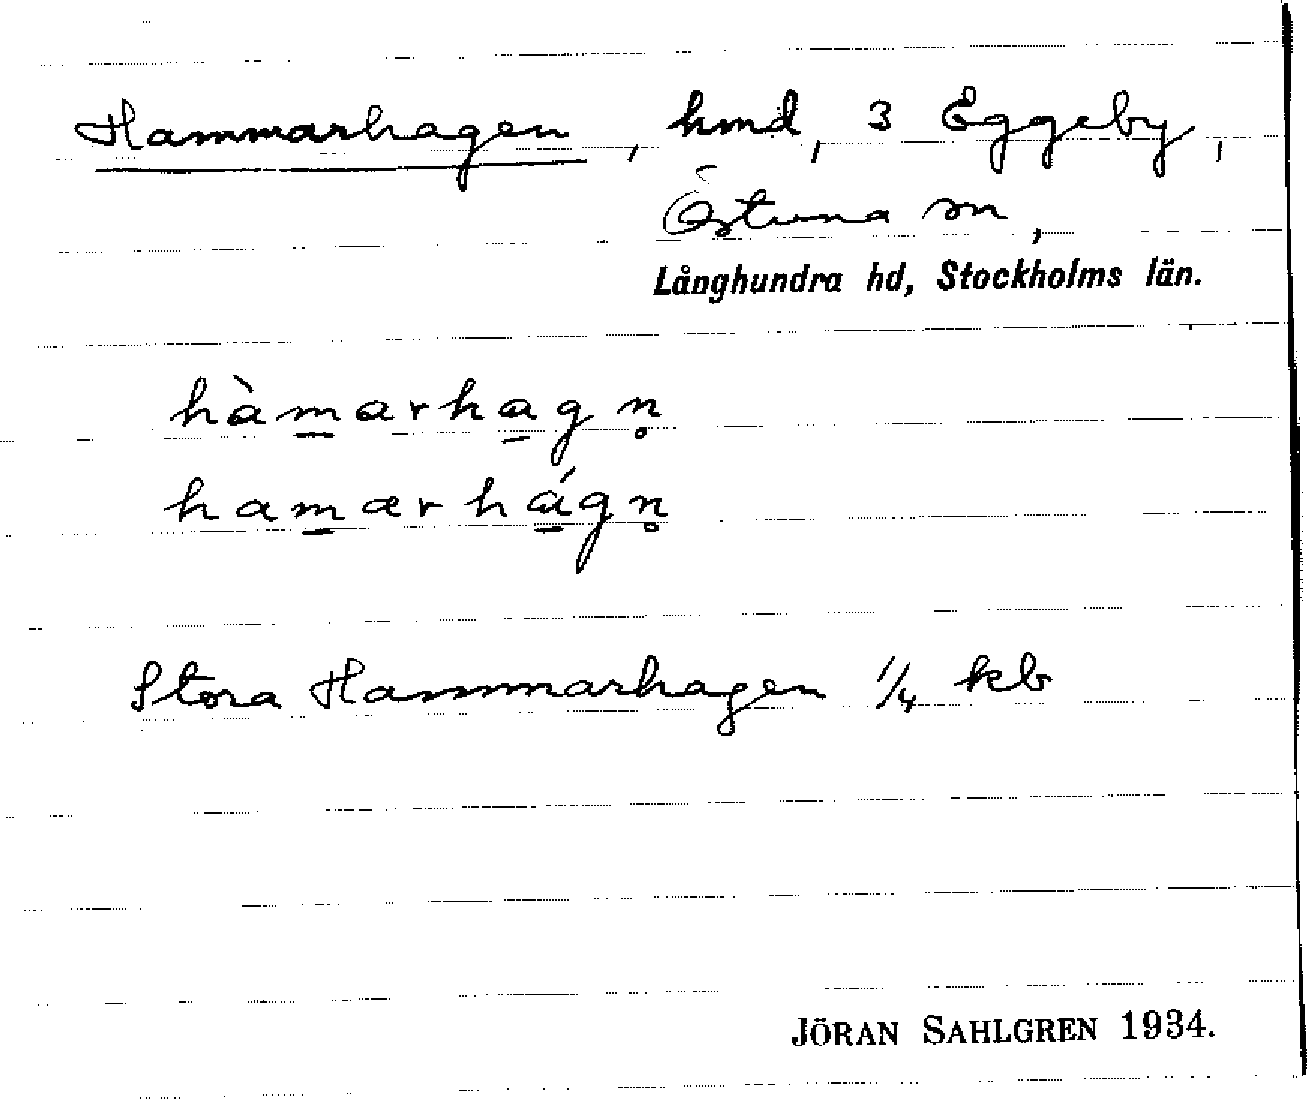 Hammarhagen, hmd, 3 Eggeby,
Östuna sn,
Långhundra hd, Stockholms län.
hàm̲arha̲gn̥
ham̲arhá̲gn̥
Stora Hammarhagen 1/4 kb
JÖRAN SAHLGREN 1934.